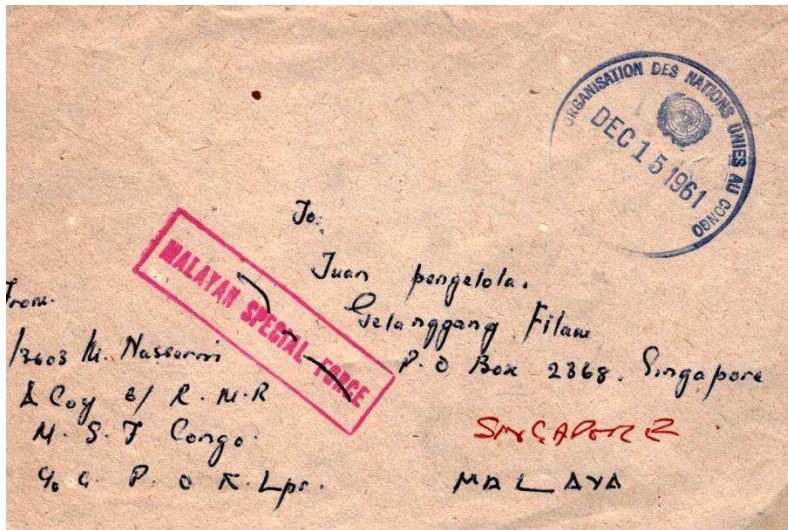 ORGANISATION DES NATIONS UNIES AU CONGO
DEC 15 1961
MALAYAN SPECIAL FORCE
To:
Tuan pengelola.
Gelanggang Filam
P.O Box 2368. Singapore
SINGAPORE
MALAYA
From.
M.
Coy 6/ R.M.R
M.S.F Congo.
c/o G.P.O K.Lpr.